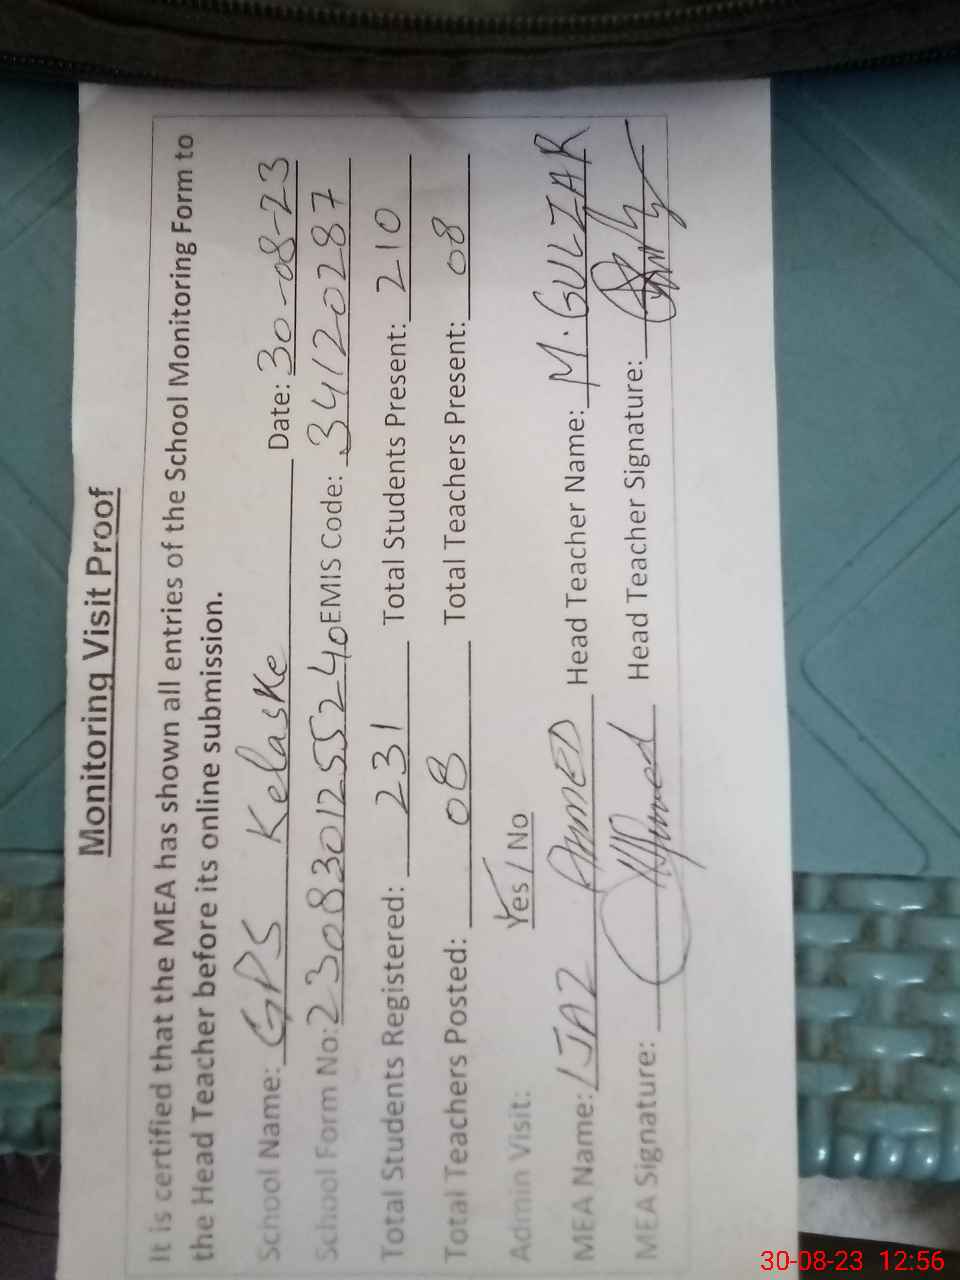 Monitoring Visit Proof
It is certified that the MEA has shown all entries of the School Monitoring Form to
the Head Teacher before its online submission.
School Name: GPS Kelaske Date: 30-08-23
School Form No: 2308301255240 EMIS Code: 34120287
Total Students Registered: 231 Total Students Present: 210
Total Teachers Posted: 08 Total Teachers Present: 08
Admin Visit: Yes / No
MEA Name: IJAZ AHMED Head Teacher Name: M. GULZAR
MEA Signature: Ahmed Head Teacher Signature:
30-08-23 12:56